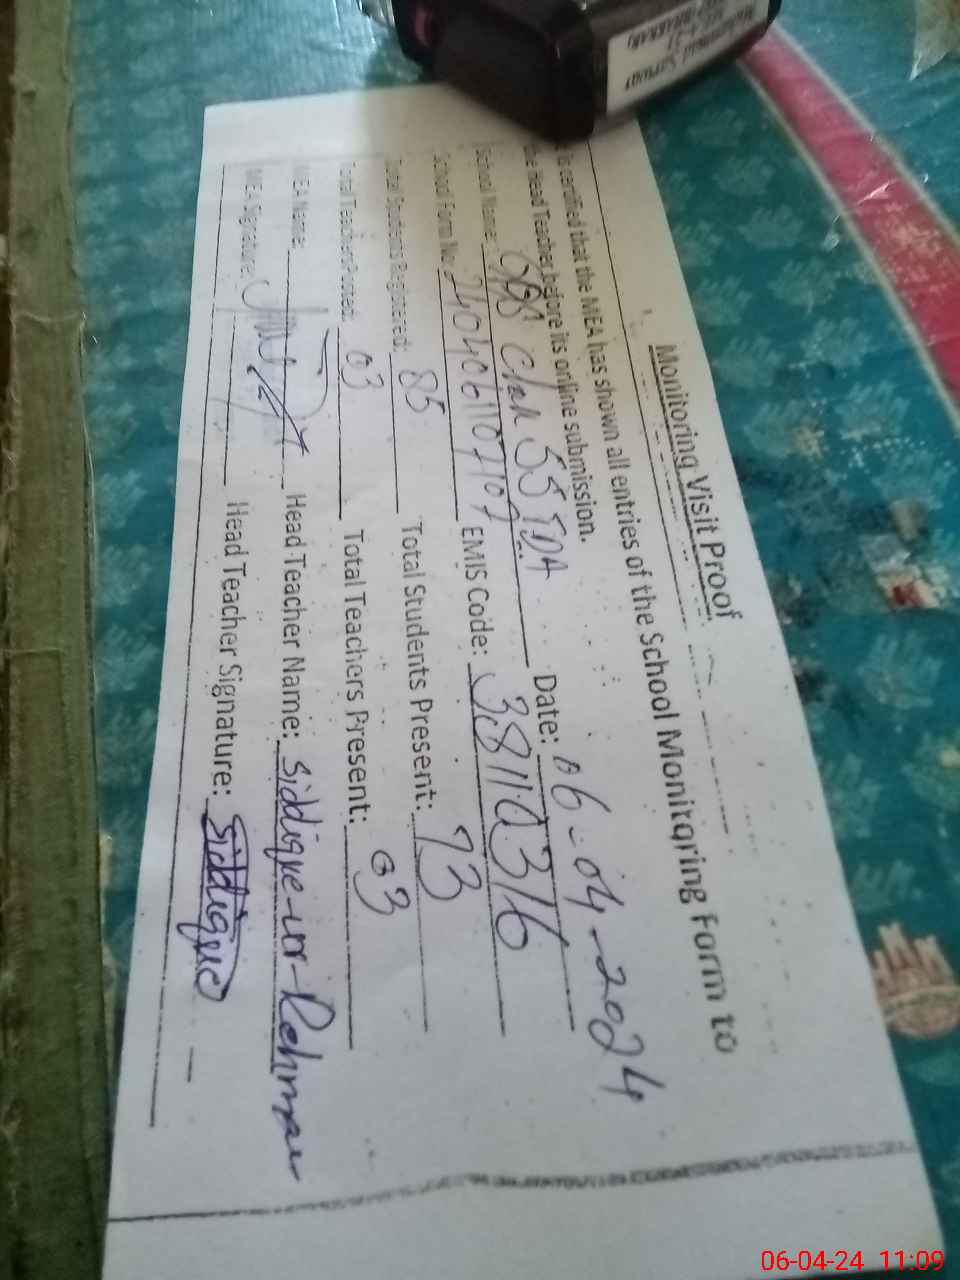 Monitoring Visit Proof
is certified that the MEA has shown all entries of the School Monitoring Form to
Head Teacher before its online submission.
School Name: Chak 55 TDA Date: 06-04-2024
School Form No: EMIS Code: 38110316
Total Students Registered: 85 Total Students Present: 73
Total Teachers Posted: 03 Total Teachers Present: 03
MEA Name: Head Teacher Name: Siddique-ur-Rehman
MEA Signature: Head Teacher Signature: Siddique
06-04-24 11:09